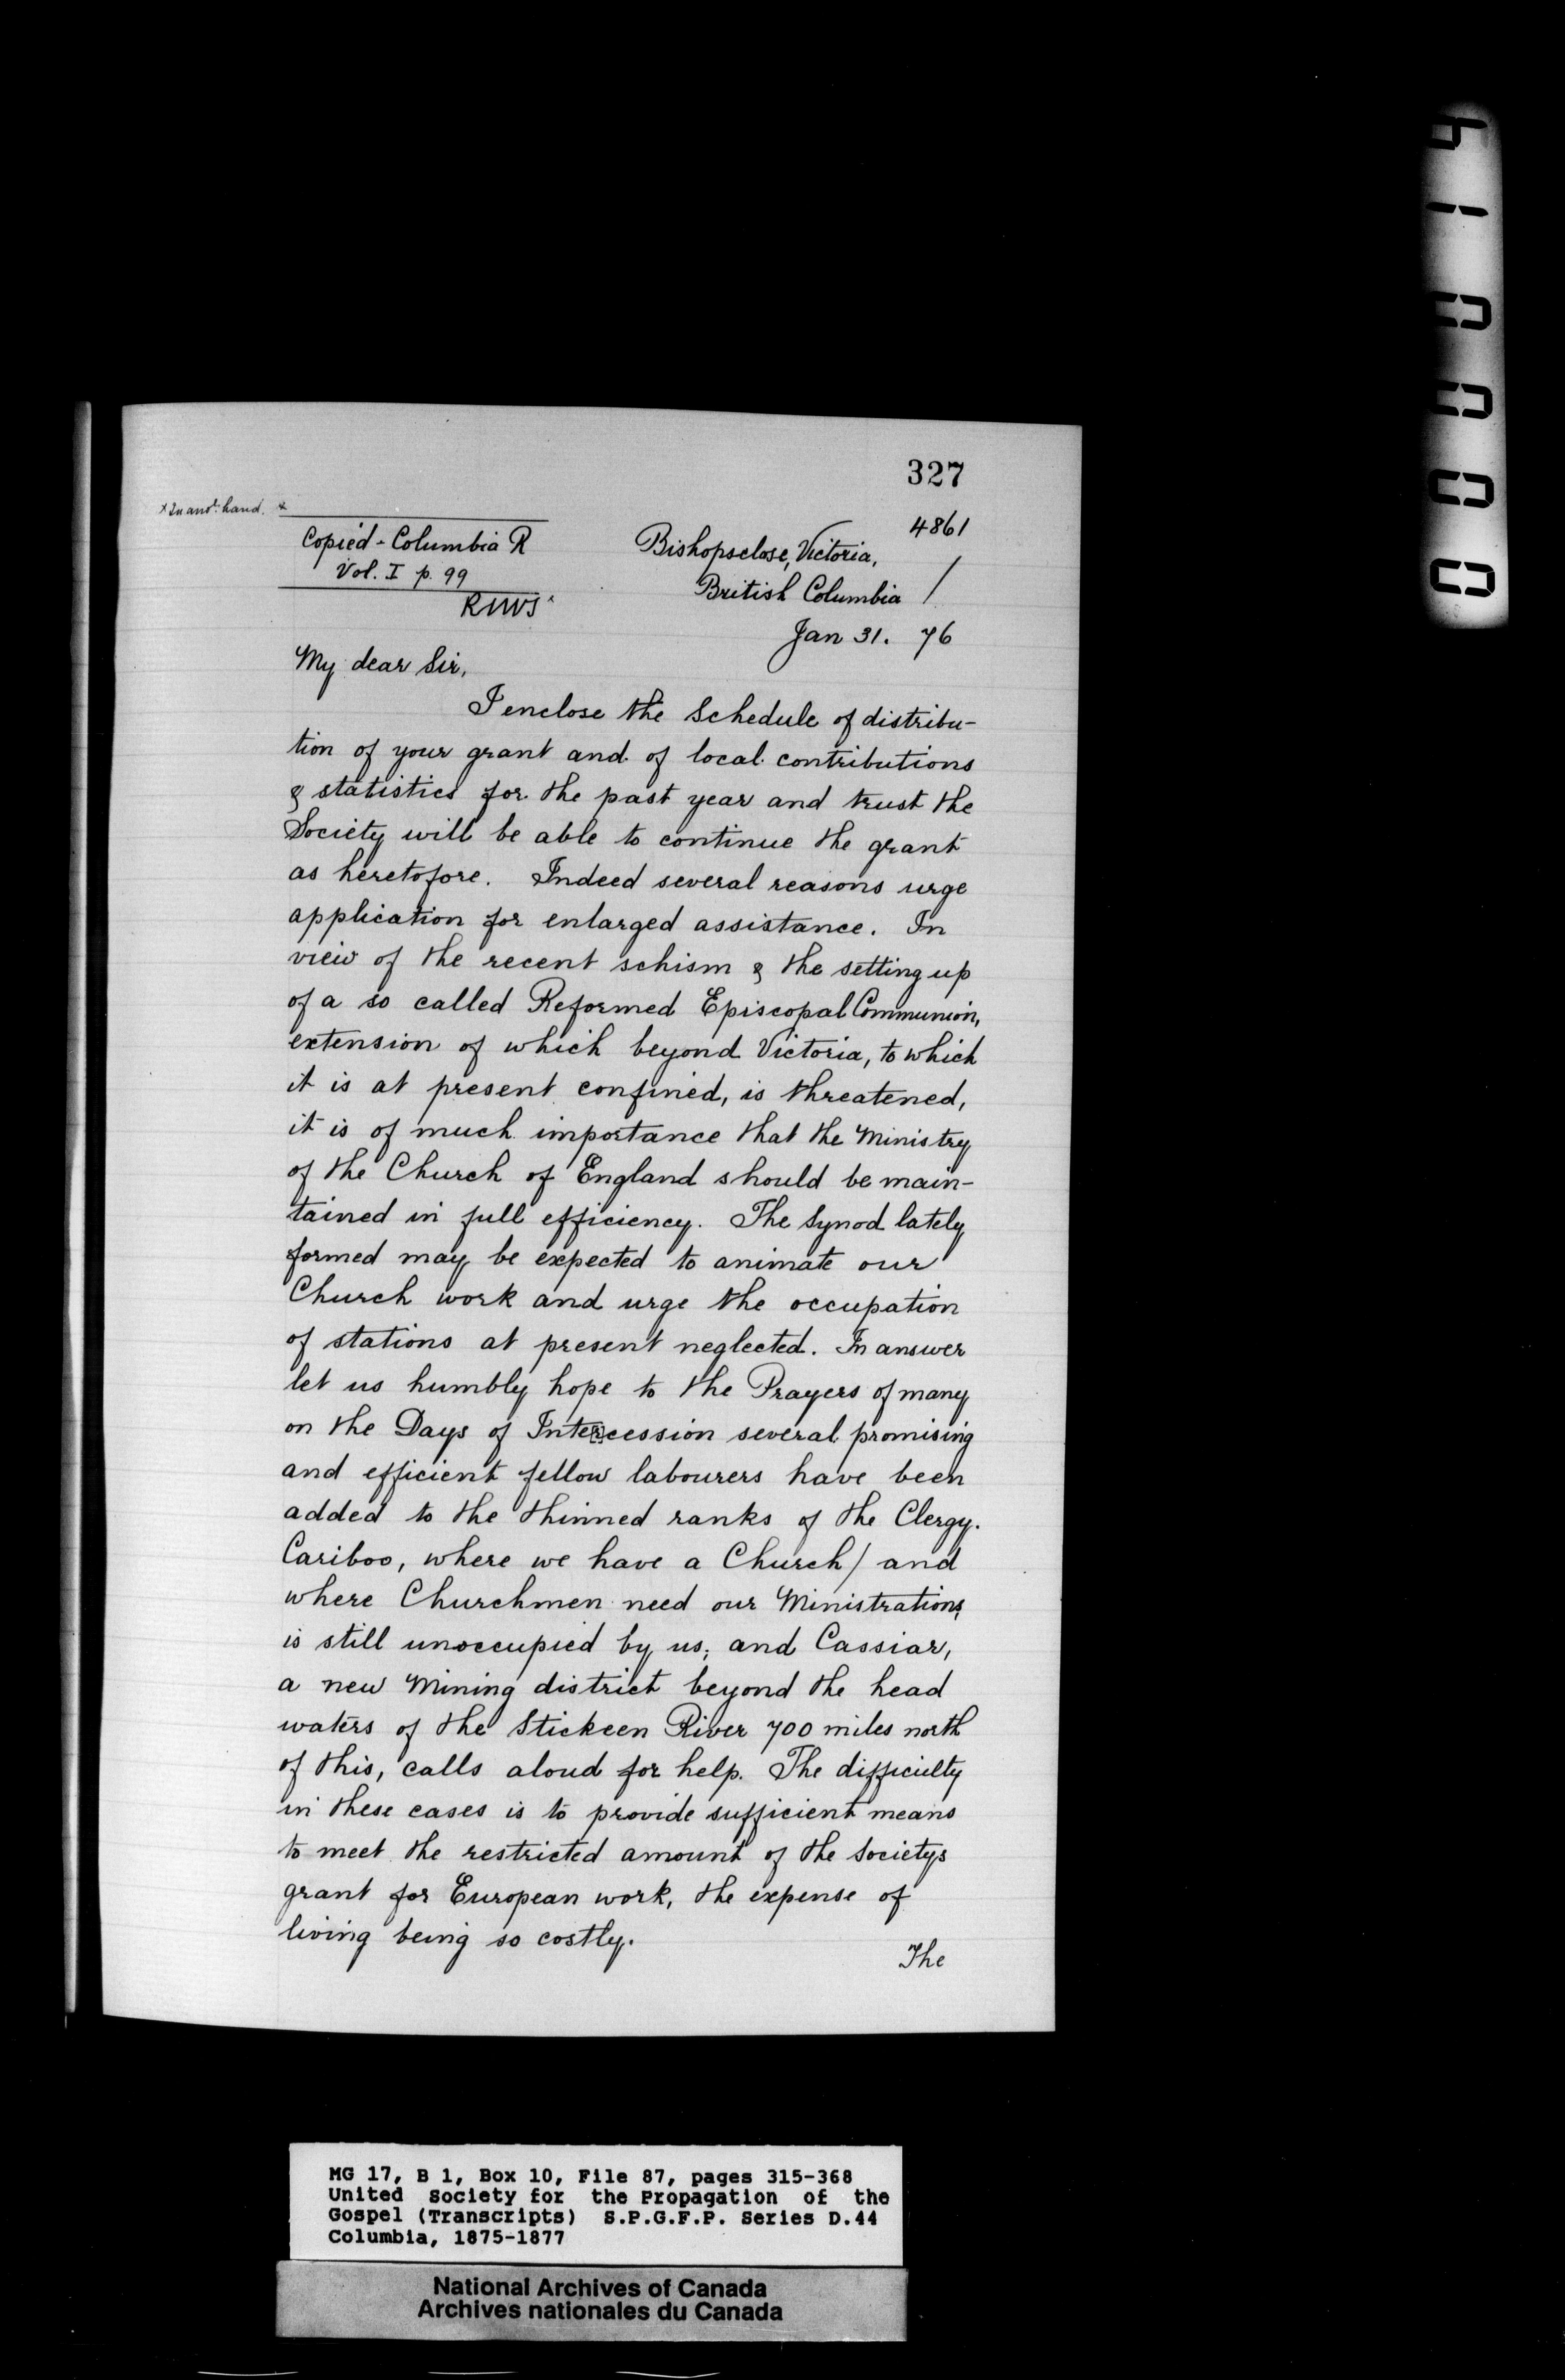 327
4861
× In anor. hand. ×
Copied - Columbia R
Vol. I p. 99
Bishopsclose, Victoria,
British Columbia /
Jan 31. 76
My dear Sir,
I enclose the Schedule of distribu-
tion of your grant and of local contributions
& statistics for the past year and trust the
Society will be able to continue the grant
as heretofore. Indeed several reasons urge
application for enlarged assistance. In
view of the recent schism & the setting up
of a so called Reformed Episcopal Communion,
extension of which beyond Victoria, to which
it is at present confined, is threatened,
it is of much importance that the Ministry
of the Church of England should be main-
tained in full efficiency. The Synod lately
formed may be expected to animate our
Church work and urge the occupation
of stations at present neglected. In answer
let us humbly hope to the Prayers of many
on the Days of Inte[r]cession several promising
and efficient fellow labourers have been
added to the thinned ranks of the Clergy.
Cariboo, where we have a Church / and
where Churchmen need our Ministrations,
is still unoccupied by us; and Cassiar,
a new Mining district beyond the head
waters of the Stickeen River 700 miles north
of this, calls aloud for help. The difficulty
in these cases is to provide sufficient means
to meet the restricted amount of the Societys
grant for European work, the expense of
living being so costly.
The
MG 17, B 1, Box 10, File 87, pages 315-368
United Society for the Propagation of the
Gospel (Transcripts) S.P.G.F.P. Series D.44
Columbia, 1875-1877
National Archives of Canada
Archives nationales du Canada